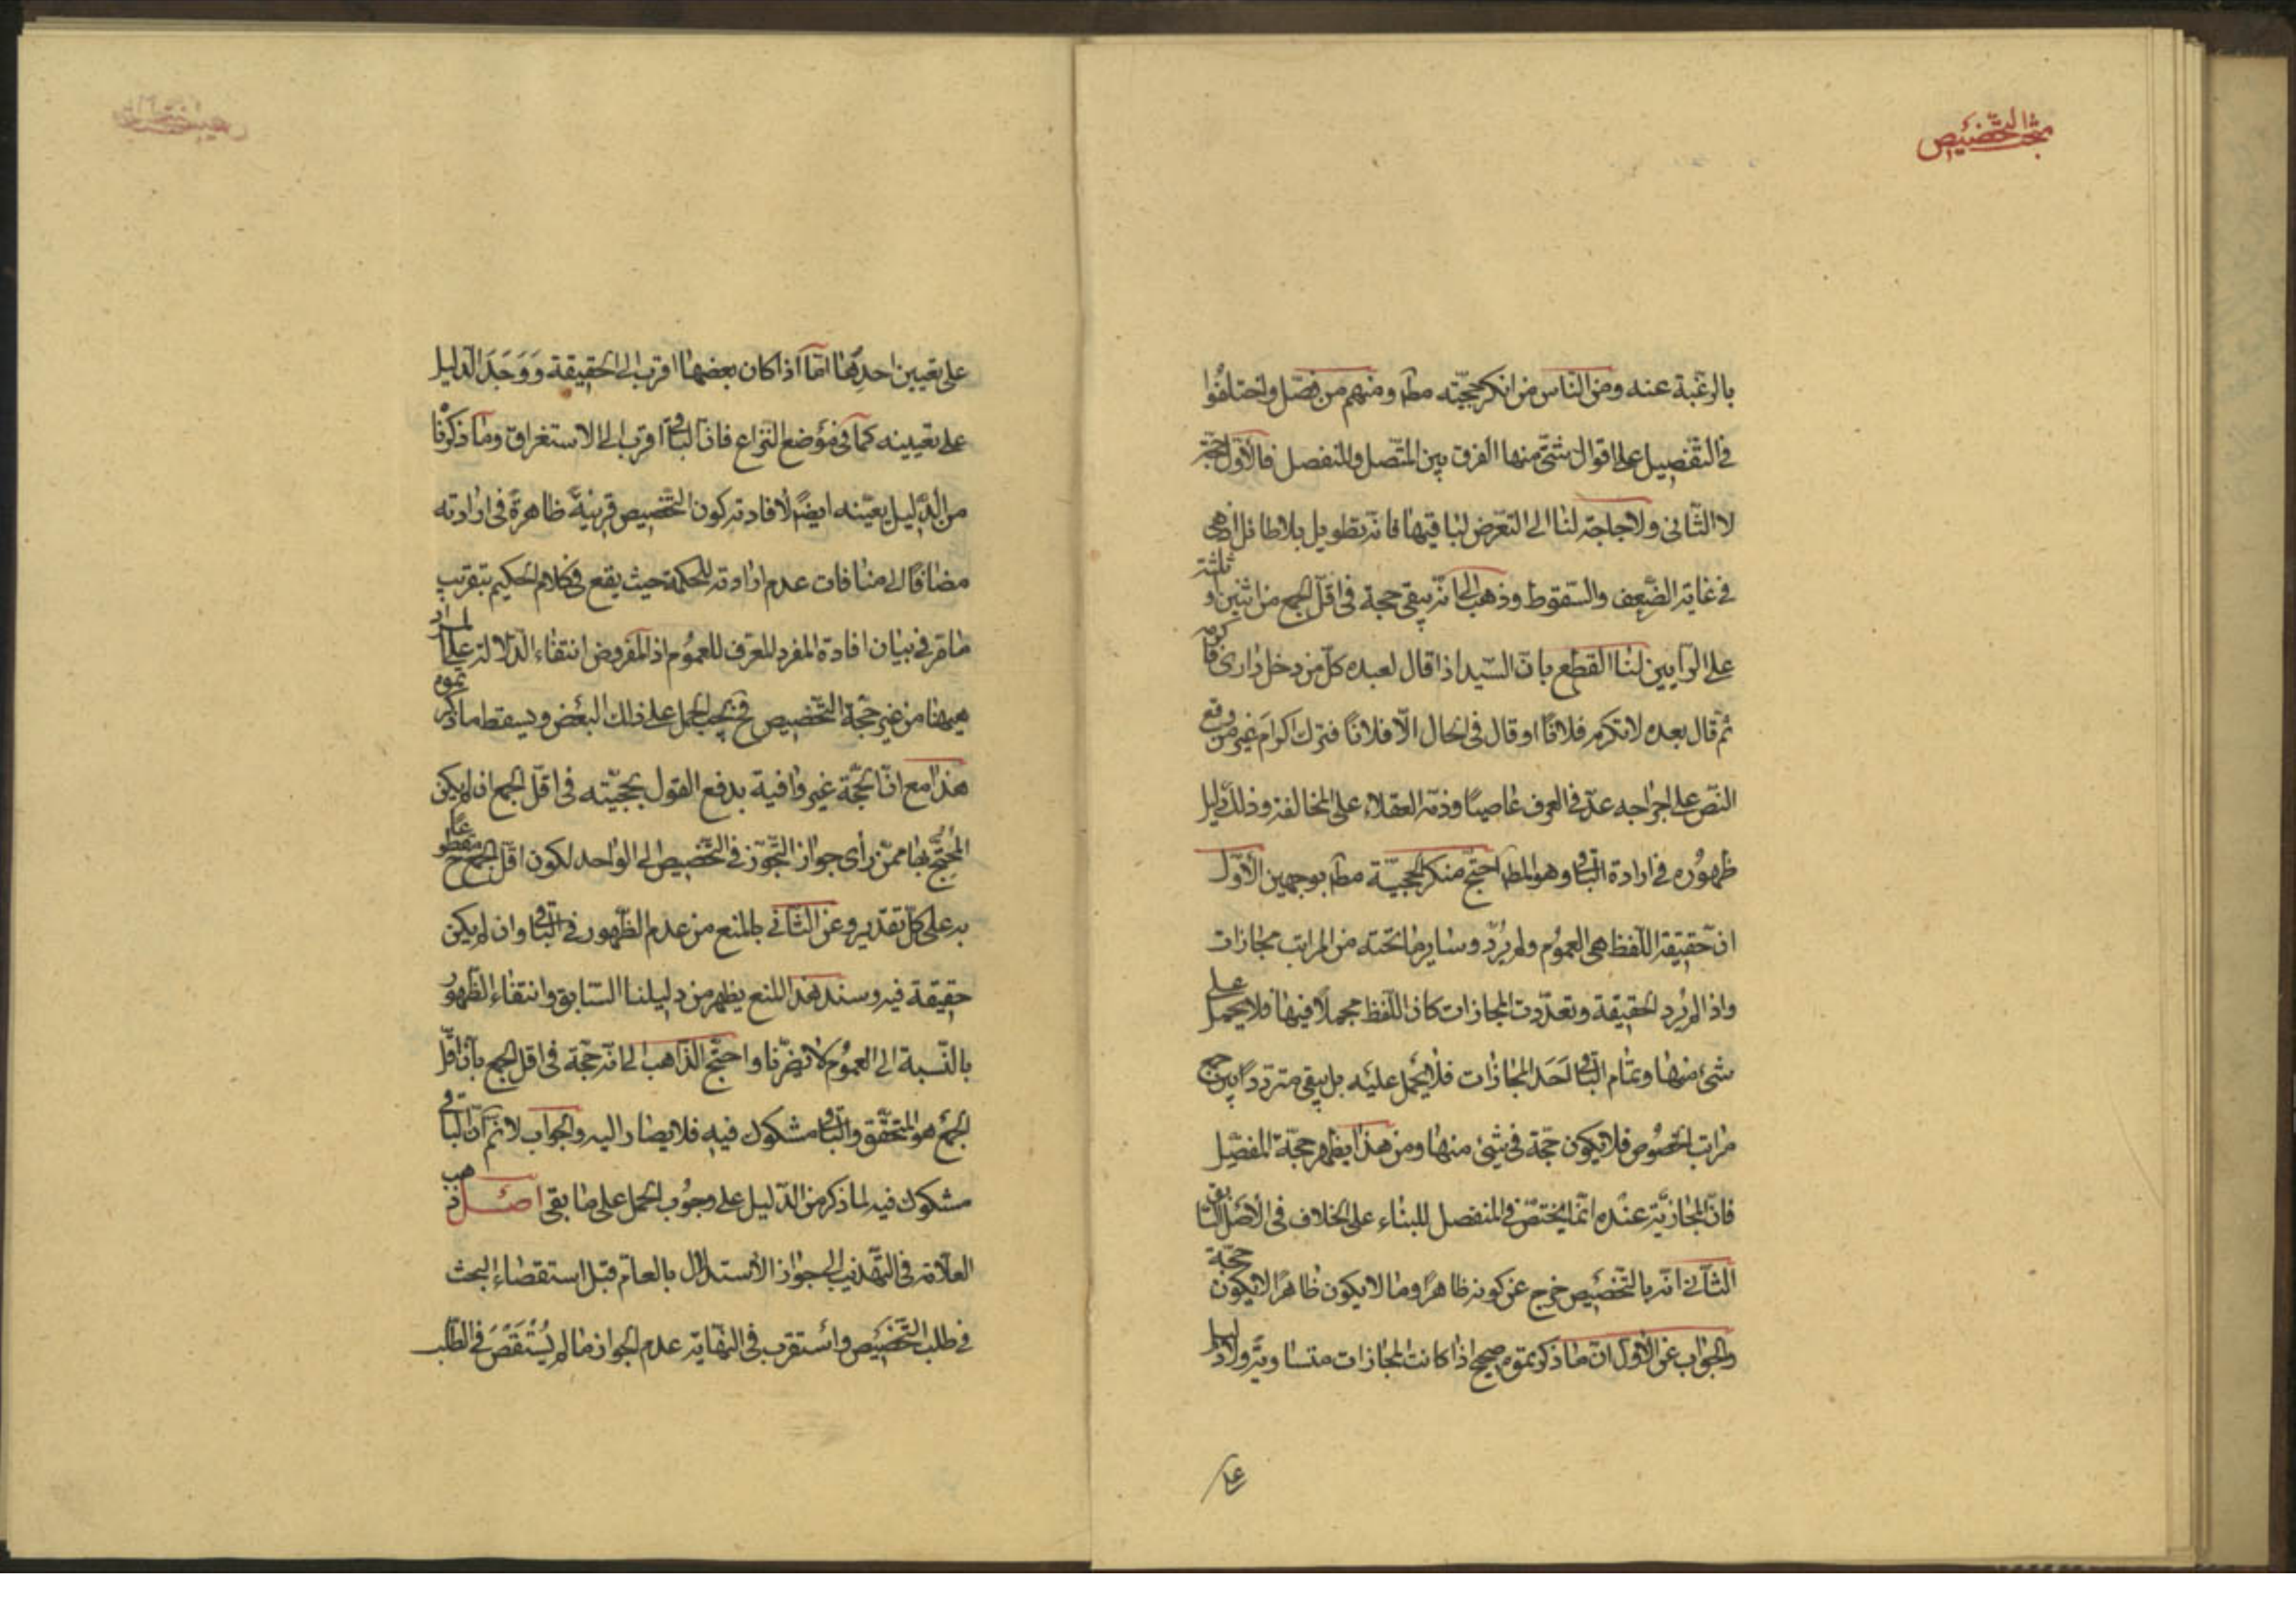 مبحث التخصيص
بالرغبة عنه ومن الناس من انكر حجيّته مطـ ومنهم من فصّل واختلفُوا
فى التفصيل على اقوال شتّى منها الفرق بين المتّصل والمنفصل فالاوّل حجّة
لا الثّانى ولا حاجة لنا الى التعرّض لباقيها فانّه تطويل بلا طائل اذ هى
فى غاية الضَّعف والسّقوط وذهب الى انّه يبقى حجة فى اقلّ الجمع من اثنين او ثلثة
على الرّايين لنا القطع بانّ السّيد اذا قال لعبده كلّ من دخل دارى فاكرمه
ثمّ قال بعده لا تكرم فلانًا او قال فى الحال الّا فلانًا فترك اكرام غير من وقع
النّص على اخراجه عدّ فى العرف عاصيًا وذمّه العقلاء على المخالفة وذلك دليل
ظهُوره فى ارادة الباقى وهو المطـ احتجّ منكر الحجيّة مطـ بوجهين الاوّل
انّ حقيقة اللّفظ هى العمُوم ولم يُرَد وساير ما تحته من المراتب مجازات
واذا لم يُرد الحقيقة وتعدّدت المجازات كان اللّفظ مجملاً فيها فلا يحمل على
شئ منها وتمام الباقى احَد المجازات فلا يحمل عليه بل يبقى متردداً بين جميع
مراتب الخصُوص فلا يكون حجّة فى شئ منها ومن هذا يظهر حجّة المفصّل
فانّ المجازيّة عنده انّما يختصّ فى المنفصل للبناء على الخلاف فى الاصل السّابق
الثّانى انّه بالتّخصيص خرج عن كونه ظاهرًا وما لا يكون ظاهرًا لا يكون حجّة
والجواب عن الاوّل انّ ما ذكرتموه صحيح اذا كانت المجازات متساوية ولا دليل
على
على تعيين احدها امّا اذا كان بعضها اقرب الى الحقيقة وَوَجَدَ الدّليل
على تعيينه كما فى مؤضع النّزاع فانّ الباقى اقرب الى الاستغراق وما ذكرنا
من الدّليل يعيّنه ايضًا لافادته كون التّخصيص قرينةً ظاهرةً فى ارادته
مضافًا الى منافات عدم ارادته للحكمة حيث يقع فى كلام الحكيم بتقريب
ما مرّ فى بيان افادة المفرد المعرّف للعمُوم اذ المفروض انتفاء الدّلالة على المراد
هيهنا من غير جهة التّخصيص فح يجب الحمل على ذلك البعض ويسقط ما ذكرتموه
هذا مع انّ الحجّة غير وافية بدفع القول بحجيّته فى اقلّ الجمع ان لم يكن
المُحتجّ بها ممّن رأى جواز التّجوّز فى التّخصيص الى الواحد لكون اقلّ الجمع ح مقطوعًا
به على كلّ تقدير وعن الثّانى بالمنع من عدم الظّهور فى الباقى وان لم يكن
حقيقة فيه وسند هذا المنع يظهر من دليلنا السّابق وانتفاء الظّهور
بالنّسبة الى العمُوم لا يضرّنا واحتجّ الذّاهب الى انّه حجّة فى اقلّ الجمع بانّ اقلّ
الجمع هو المتحقّق والباقى مشكوك فيه فلا يصار اليه والجواب لا نمّ انّ الباقى
مشكوك فيه لما ذكر من الدّليل على وجُوب الحمل على ما بقى اصـل ذهب
العلّامة فى التّهذيب الى جواز الاستدلال بالعامّ قبل استقصاء البحث
فى طلب التّخصيص واستقرب فى النّهاية عدم الجواز ما لم يُسْتَقصَ فى الطّلب